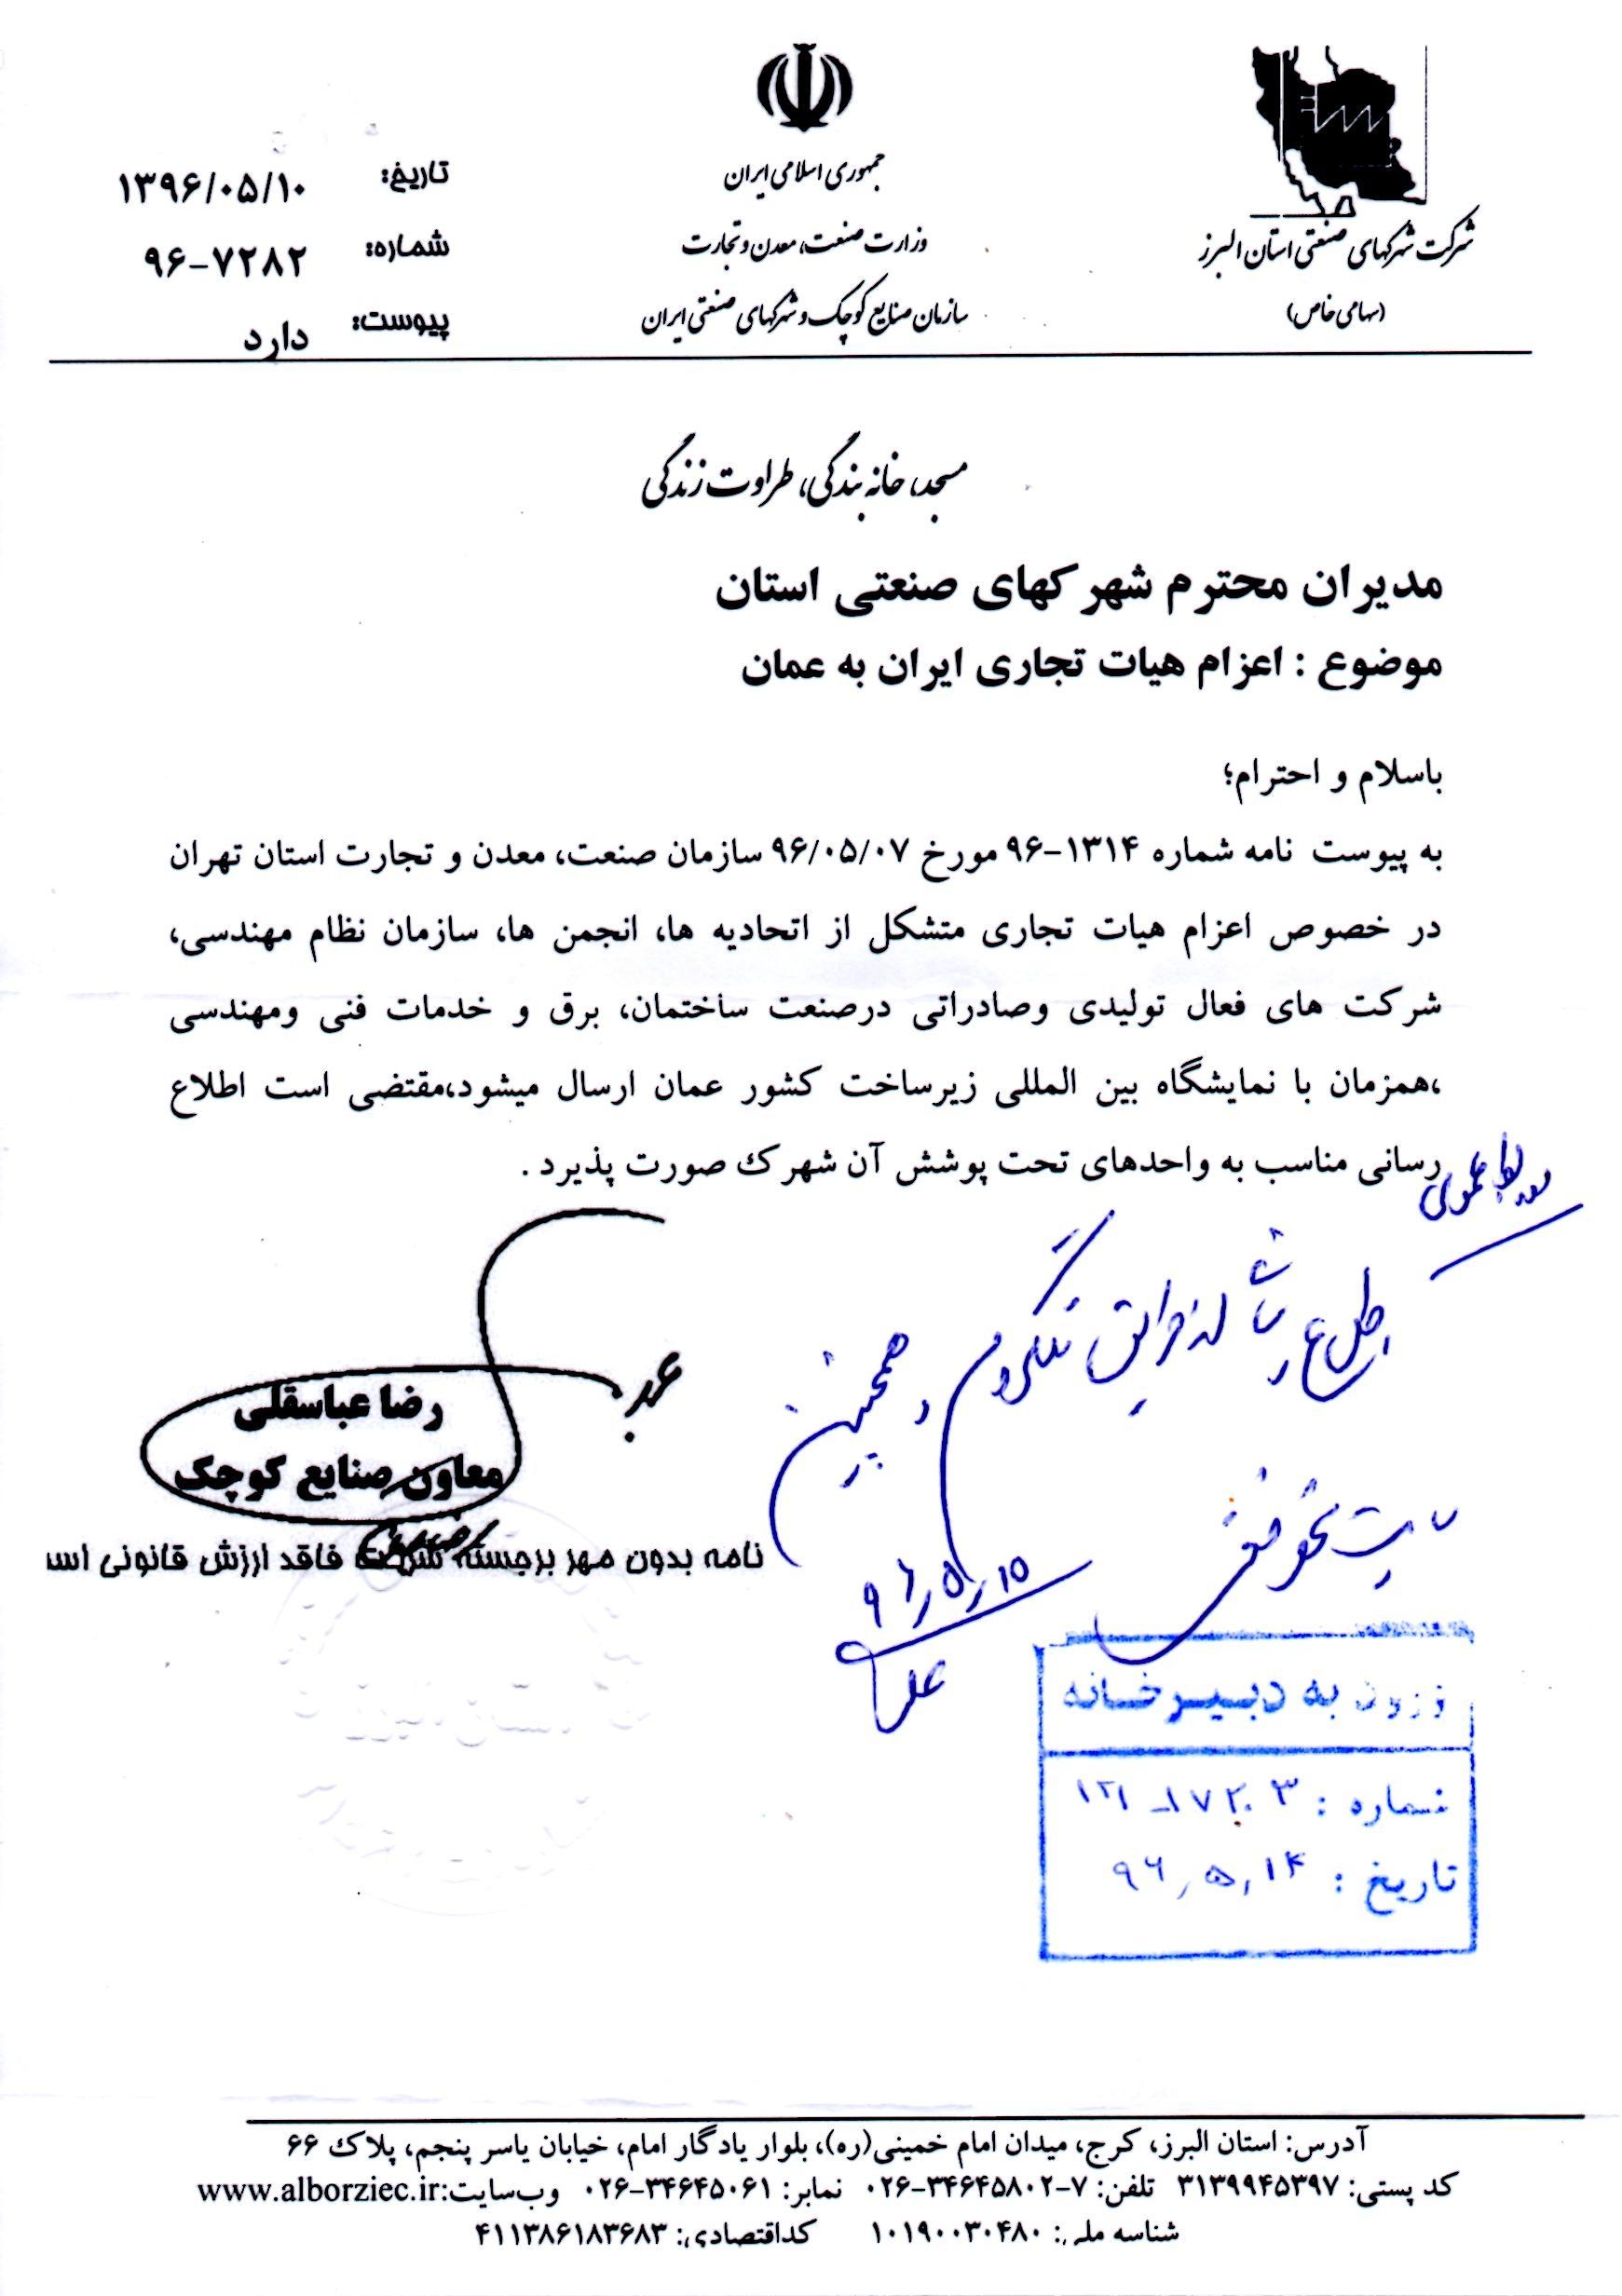 شرکت شهرکهای صنعتی استان البرز
(سهامی خاص)
جمهوری اسلامی ایران
وزارت صنعت، معدن و تجارت
سازمان صنایع کوچک و شهرکهای صنعتی ایران
تاریخ: ۱۳۹۶/۰۵/۱۰
شماره: ۹۶-۷۲۸۲
پیوست: دارد
مسجد، خانه بندگی، طراوت زندگی
مدیران محترم شهرکهای صنعتی استان
موضوع : اعزام هیات تجاری ایران به عمان
باسلام و احترام؛
به پیوست نامه شماره ۱۳۱۴-۹۶ مورخ ۹۶/۰۵/۰۷ سازمان صنعت، معدن و تجارت استان تهران
در خصوص اعزام هیات تجاری متشکل از اتحادیه ها، انجمن ها، سازمان نظام مهندسی،
شرکت های فعال تولیدی وصادراتی درصنعت ساختمان، برق و خدمات فنی ومهندسی
،همزمان با نمایشگاه بین المللی زیرساخت کشور عمان ارسال میشود،مقتضی است اطلاع
رسانی مناسب به واحدهای تحت پوشش آن شهرک صورت پذیرد .
روابط عمومی
از طریق تلگرام و همچنین
سایت
۹۶/۵/۱۵
رضا عباسقلی
معاون صنایع کوچک
نامه بدون مهر برجسته شرکت فاقد ارزش قانونی اس
ورود به دبیرخانه
شماره :
تاریخ : ۹۶/۵/۱۴
آدرس: استان البرز، کرج، میدان امام خمینی(ره)، بلوار یادگار امام، خیابان یاسر پنجم، پلاک ۶۶
کد پستی: ۳۱۳۹۹۴۵۳۹۷ تلفن: ۷-۳۴۶۴۵۸۰۲-۰۲۶ نمابر: ۳۴۶۴۵۰۶۱-۰۲۶ وب‌سایت:www.alborziec.ir
شناسه ملی: ۱۰۱۹۰۰۳۰۴۸۰ کداقتصادی: ۴۱۱۳۸۶۱۸۳۶۸۳